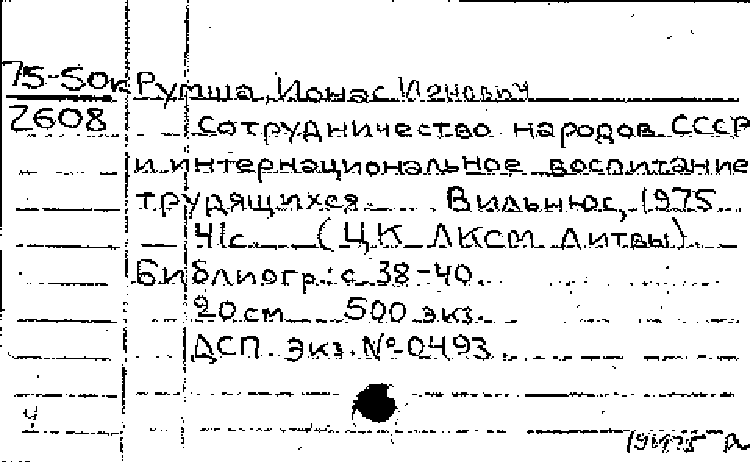 75-50к Румша, Ионас Ионович
2608 Сотрудничество народов СССР
и интернациональное воспитание
трудящихся. Вильнюс, 1975
41с. (ЦК ЛКСМ Литвы).
Библиогр.: с. 38-40.
20 см 500 экз.
ДСП. Экз. № 0493.
ч